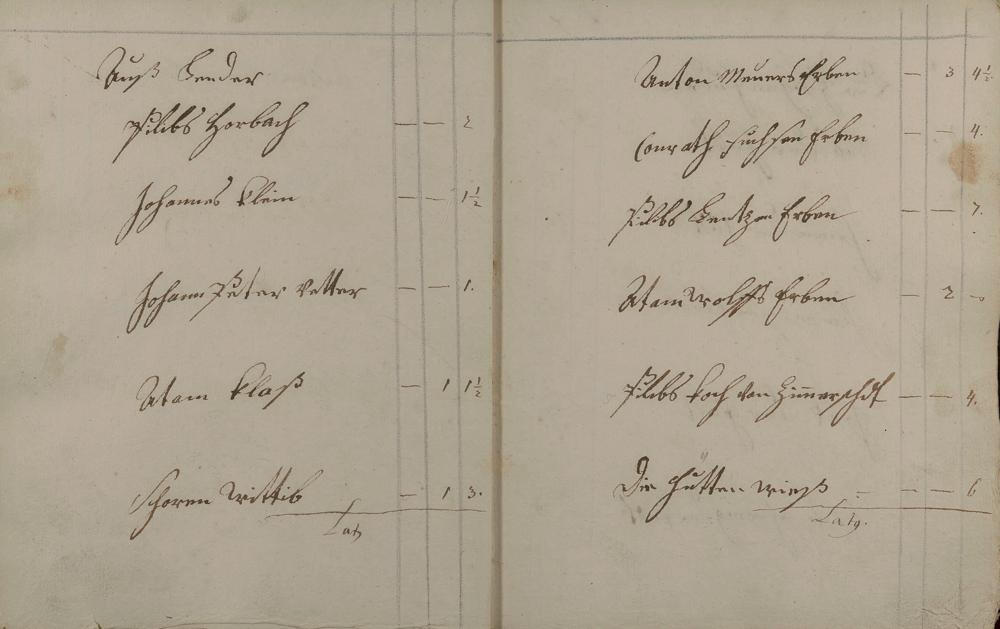 Auß Lender
Pilibs Horbach — — 2
Johannes Klein — — 1½
Johann Peter Vetter — — 1.
Atam Klaß — 1 1½
Schoren Wittib — 1 3.
Latq
Anton Meuers Erben — 3 4½
Conrath Fuchsen Erben — — 4.
Pilibs Lentzen Erben — — 7.
Atam Wolffs Erben — 2 -o
Pilibs Koch von — — 4.
Die Hütten wieß — — 6
Latq.